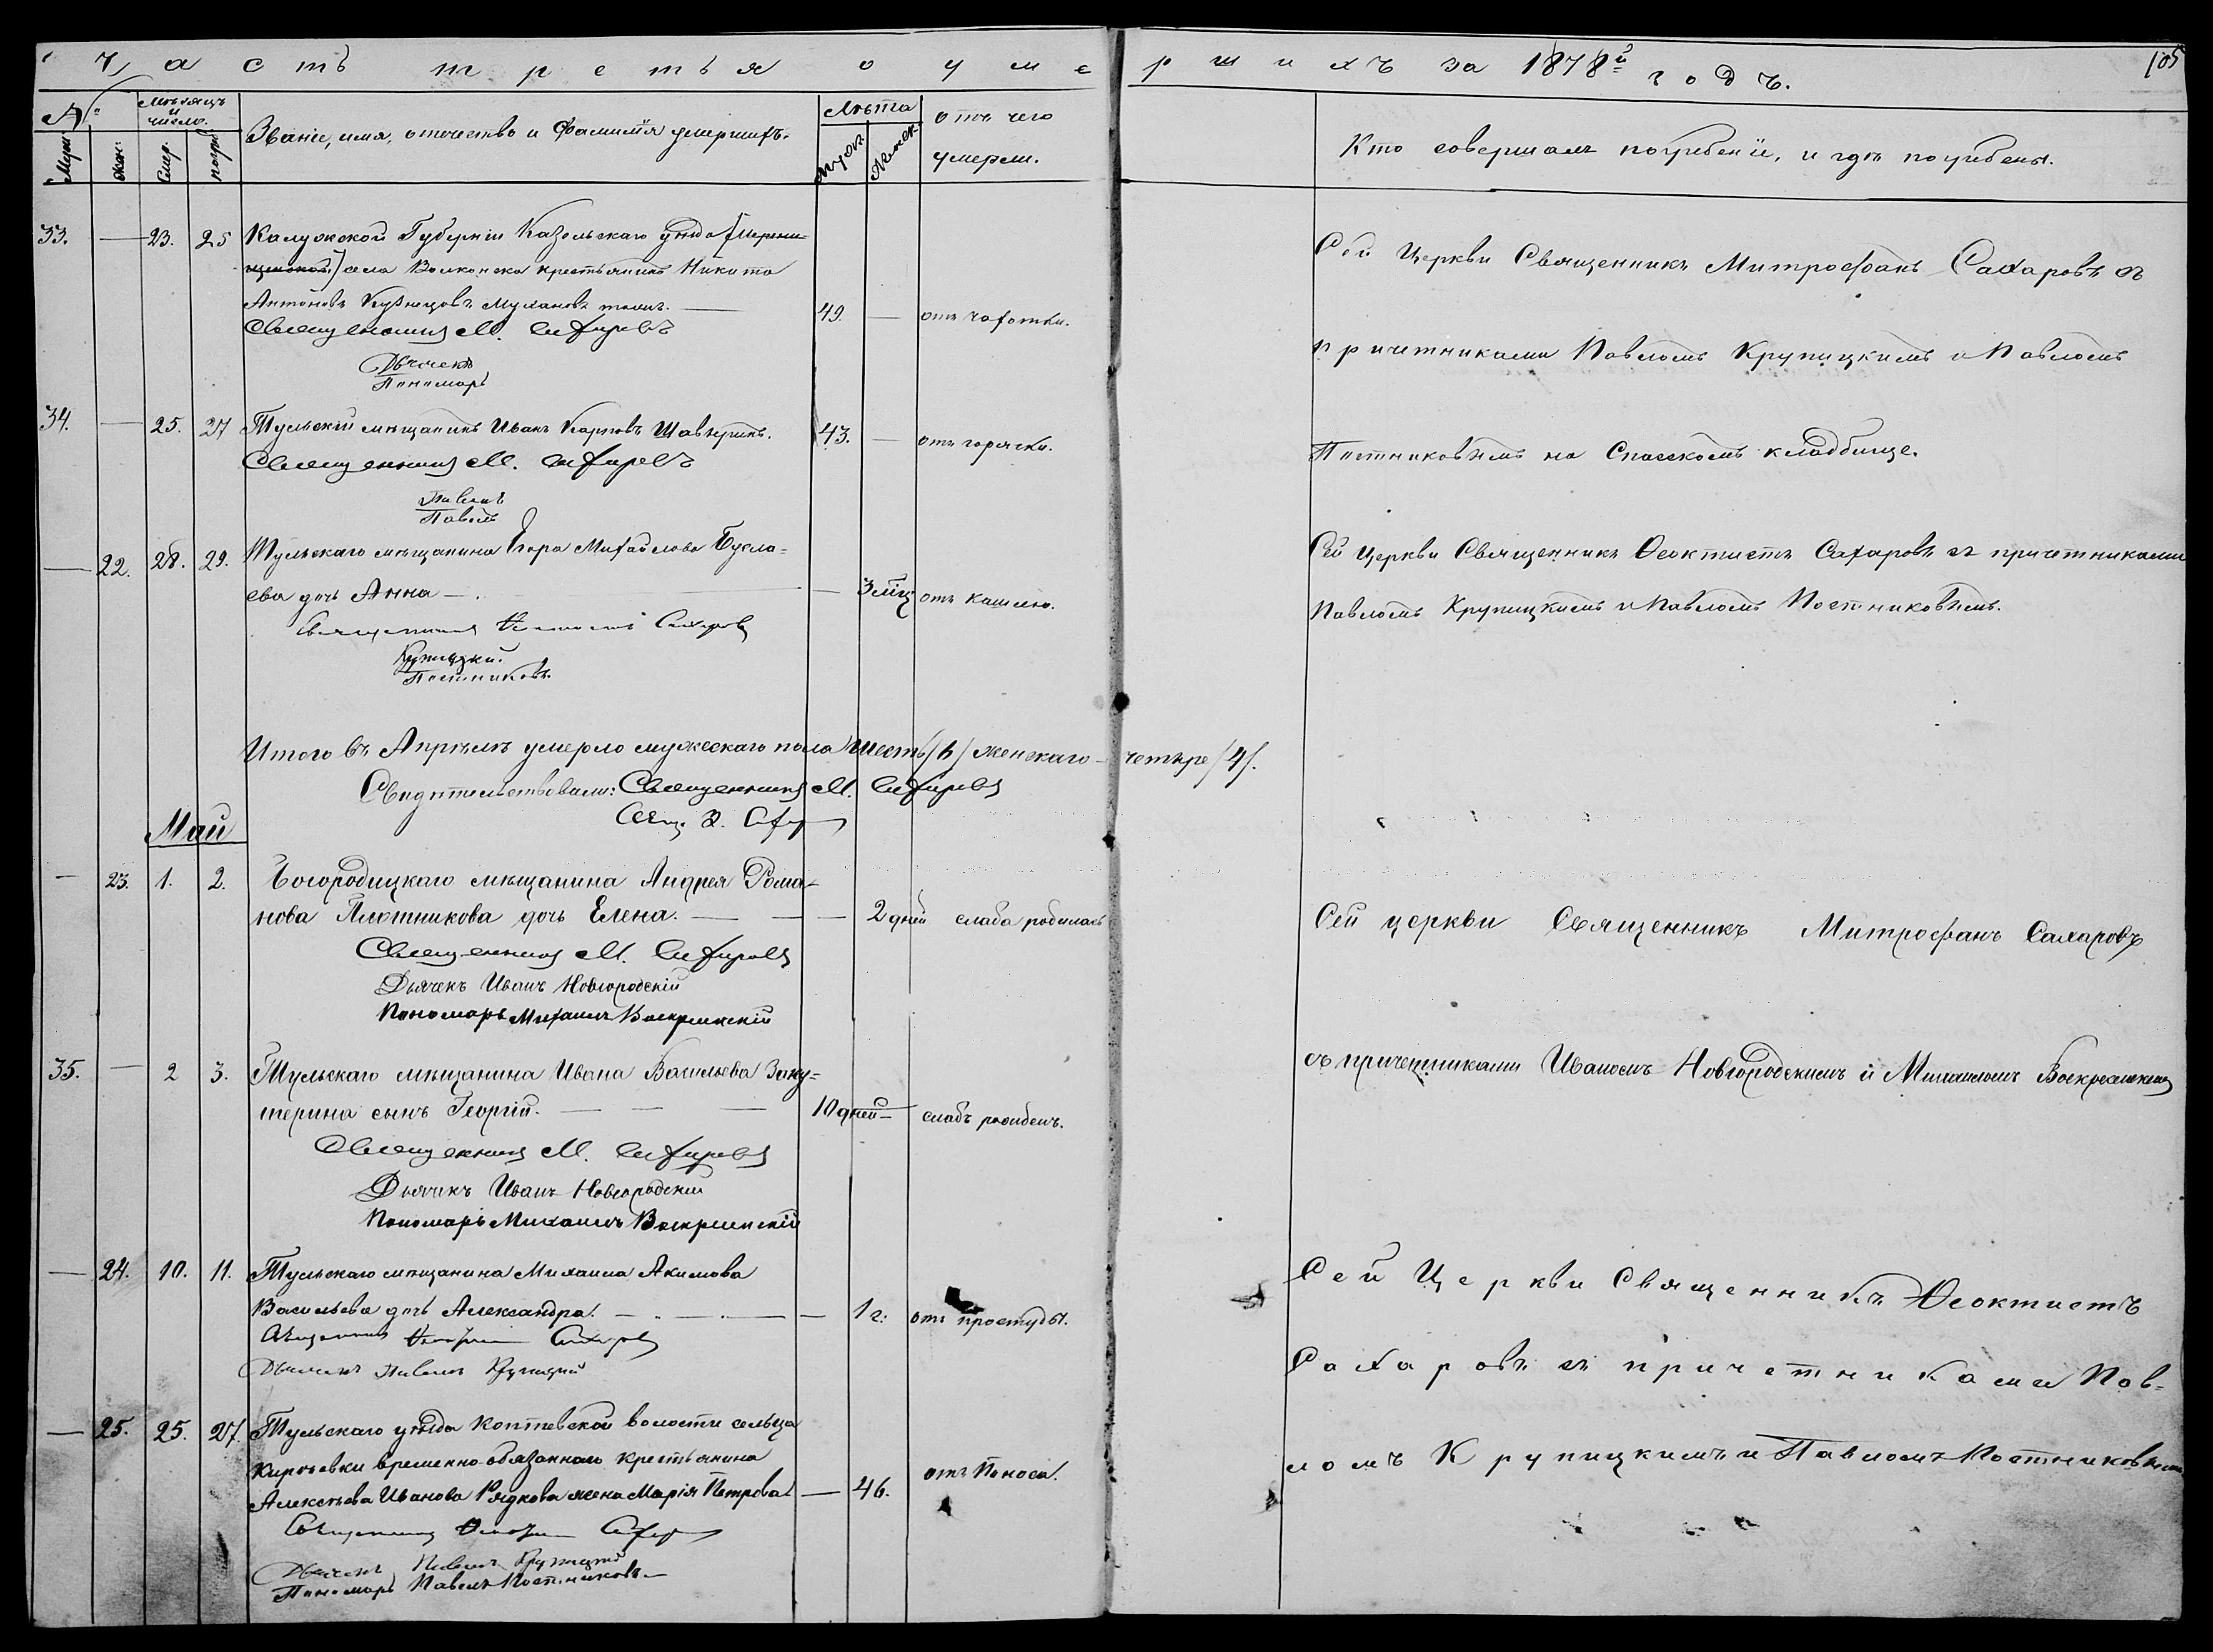 часть третья о умершихъ за 1878й годъ.
105
№
Мѣсяцъ и число.
Званіе, имя, отечество и фамилія умершихъ.
Лѣта
отъ чего умерли.
Кто совершалъ погребеніе, и гдѣ погребены.
Муж.
Жен.
Смер.
погре
Муж.
Женск.
33. — 23. 25 Калужской Губерніи Козельскаго уѣзда
села Волконска крестьянинъ Никита
Антоновъ Кузнецовъ Мулановъ тожъ. — 49. — отъ чахотки.
Священникъ М. Сахаровъ
Дьячекъ
Пономарь
Сей Церкви Священникъ Митрофанъ Сахаровъ съ
причетниками Павломъ Крупицкимъ и Павломъ
Постниковымъ на Спасскомъ кладбище.
34. — 25. 27 Тульскій мѣщанинъ Иванъ Карповъ Шавыринъ. 43. — отъ горячки.
Священникъ М. Сахаровъ
Павелъ
Павелъ
— 22. 28. 29. Тульскаго мѣщанина Егора Михайлова Бусла=
ева дочь Анна — . — 3 мѣц отъ кашлю.
Священникъ Феоктистъ Сахаровъ
Крупицкій.
Постниковъ.
Сей Церкви Священникъ Ѳеоктистъ Сахаровъ съ причетниками
Павломъ Крупицкимъ и Павломъ Постниковымъ.
Итого въ Апрѣлѣ умерло мужескаго пола шесть /6/ женскаго — четыре /4/.
Свидѣтельствовали: Священникъ М. Сахаровъ
Свящ. Ѳ. Сахар
Май
— 23. 1. 2. Богородицкаго мѣщанина Андрея Рома-
нова Плотникова дочь Елена. — — — 2 дней слаба родилась
Священникъ М. Сахаровъ
Дьячекъ Иванъ Новгородскій
Пономарь Михаилъ Воскресенскій
Сей церкви Священникъ Митрофанъ Сахаровъ
съ причетниками Иваномъ Новгородскимъ и Михаиломъ Воскресенскимъ
35. — 2 3. Тульскаго мѣщанина Ивана Васильева Заку=
терина сынъ Георгій. — — — 10 дней — слабъ рожденъ.
Священникъ М. Сахаровъ
Дьячекъ Иванъ Новгородскій
Пономарь Михаилъ Воскресенскій
— 24. 10. 11. Тульскаго мѣщанина Михаила Акимова
Васильева дочь Александра. — — — 1 г. отъ простуды.
Священникъ Феоктистъ Сахаровъ
Дьячекъ Павелъ Крупицкій
Сей Церкви Священникъ Ѳеоктистъ
Сахаровъ съ причетниками Пав-
ломъ Крупицкимъ и Павломъ Постниковымъ
— 25. 25. 27. Тульскаго уѣзда Коптевской волости сельца
Киреевки временно-обязаннаго крестьянина
Алексѣева Иванова Рядкова жена Марія Петрова — 46. отъ Поноса.
Священникъ Феоктистъ Сахар
Дьячекъ Павелъ Крупицкій
Пономарь Павелъ Постниковъ. —